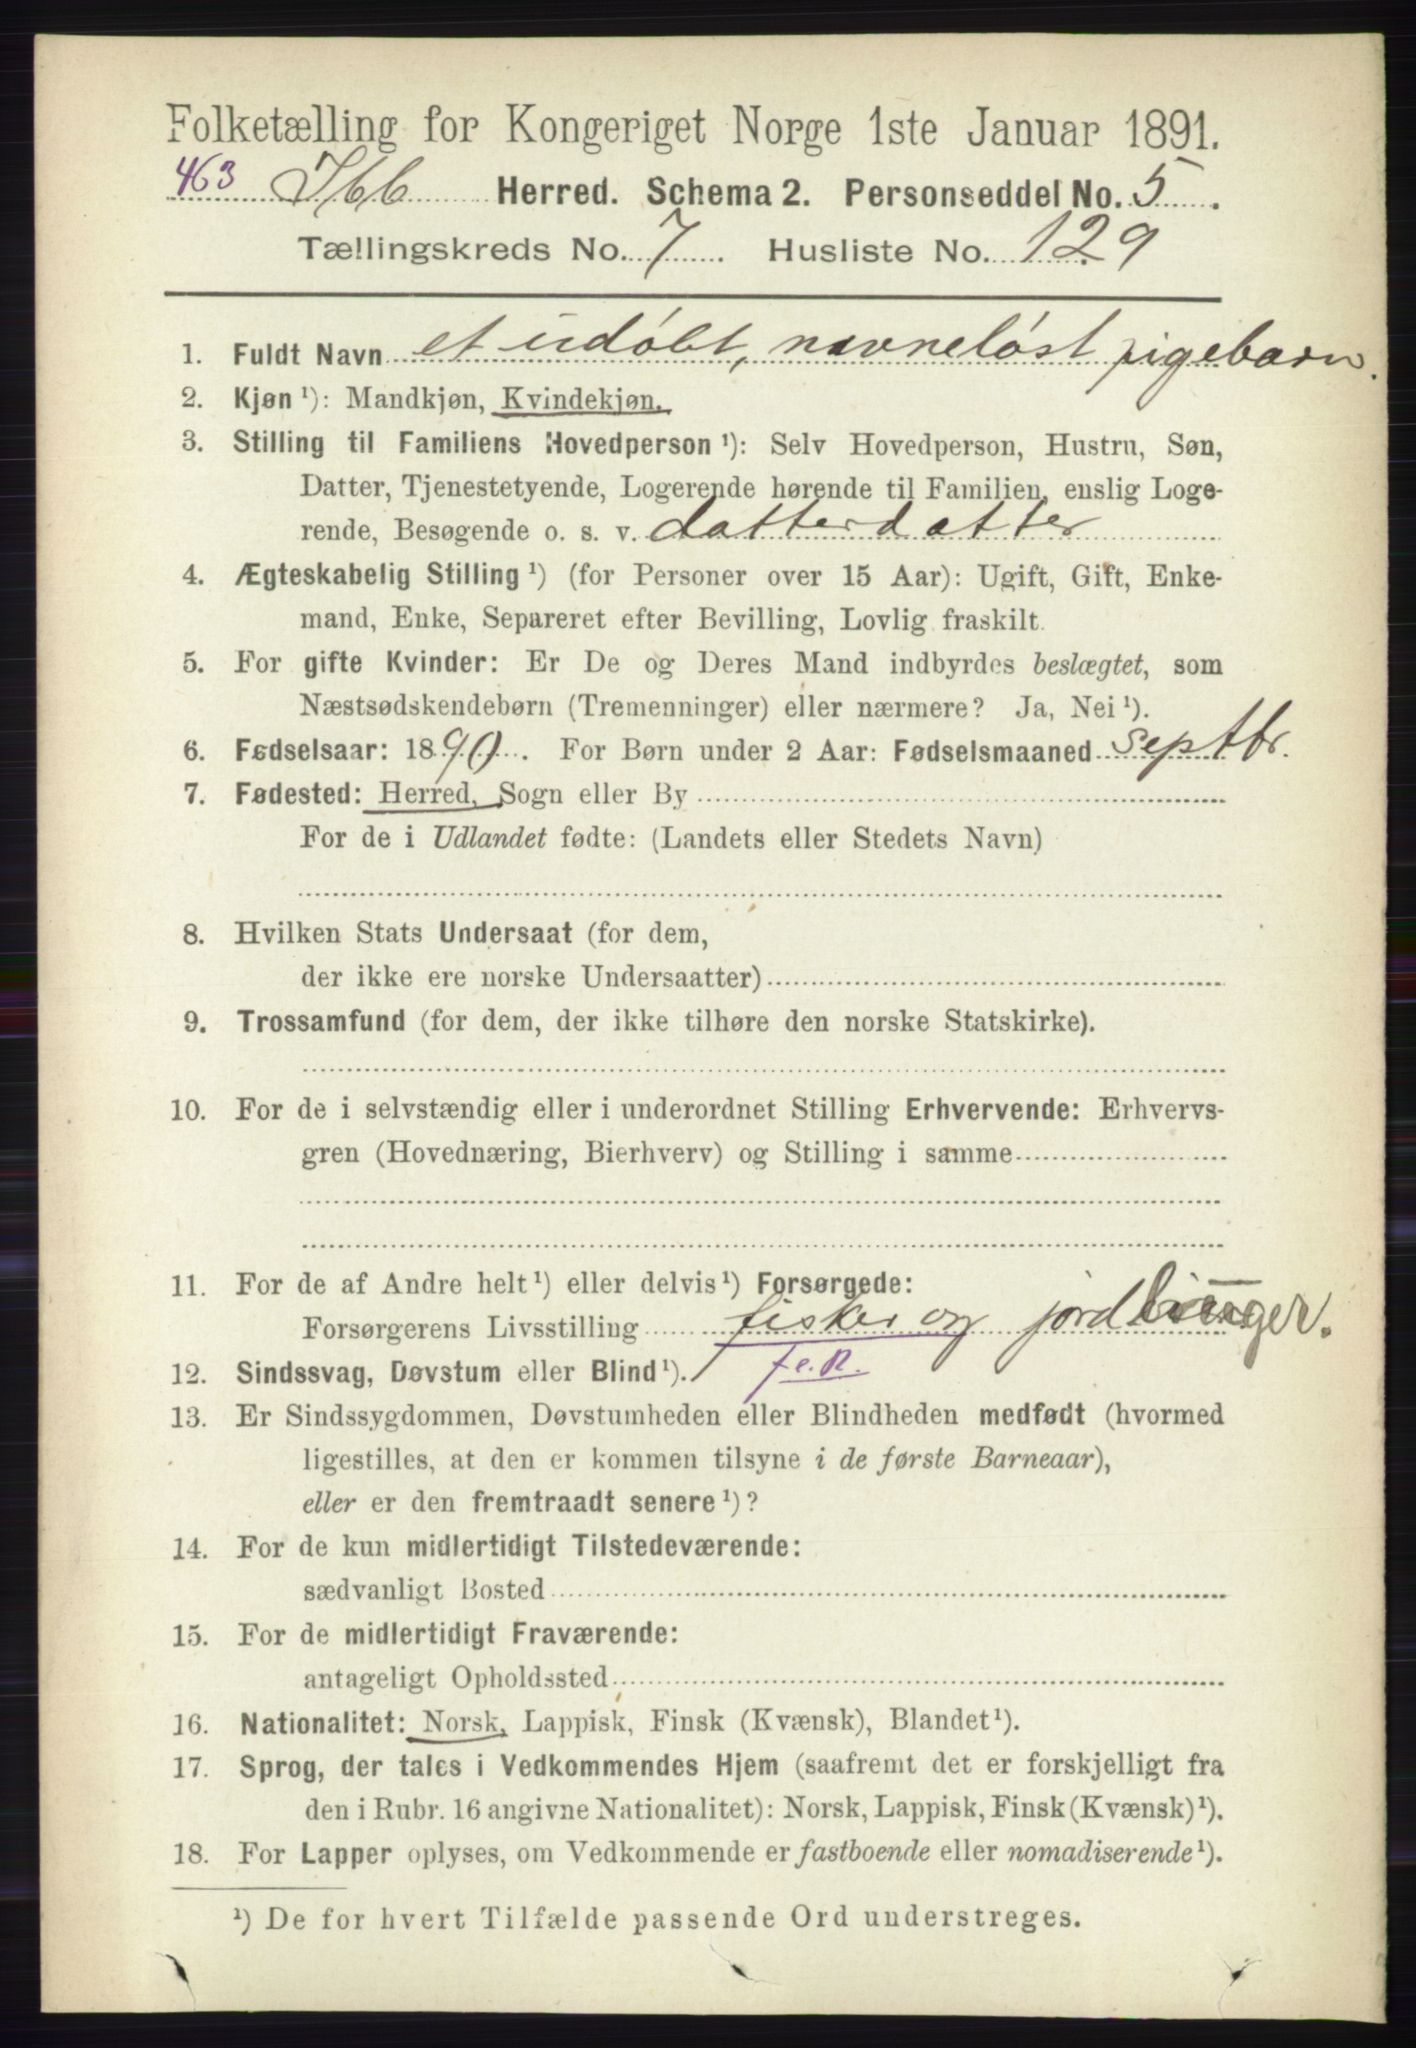 Folketælling for Kongeriget Norge 1ste Januar 1891.
463 Ibb Herred. Schema 2. Personseddel No. 5.
Tællingskreds No. 7. Husliste No. 129
1. Fuldt Navn et udøbt, navneløst pigebarn.
2. Kjøn ¹): Mandkjøn, Kvindekjøn.
3. Stilling til Familiens Hovedperson ¹): Selv Hovedperson, Hustru, Søn,
Datter, Tjenestetyende, Logerende hørende til Familien, enslig Loge-
rende, Besøgende o. s. v. datterdatter
4. Ægteskabelig Stilling ¹) (for Personer over 15 Aar): Ugift, Gift, Enke-
mand, Enke, Separeret efter Bevilling, Lovlig fraskilt.
5. For gifte Kvinder: Er De og Deres Mand indbyrdes beslægtet, som
Næstsødskendebørn (Tremenninger) eller nærmere? Ja, Nei ¹).
6. Fødselsaar: 1890. For Børn under 2 Aar: Fødselsmaaned septbr.
7. Fødested: Herred, Sogn eller By
For de i Udlandet fødte: (Landets eller Stedets Navn)
8. Hvilken Stats Undersaat (for dem,
der ikke ere norske Undersaatter)
9. Trossamfund (for dem, der ikke tilhøre den norske Statskirke).
10. For de i selvstændig eller i underordnet Stilling Erhvervende: Erhvervs-
gren (Hovednæring, Bierhverv) og Stilling i samme
11. For de af Andre helt ¹) eller delvis ¹) Forsørgede:
Forsørgerens Livsstilling fisker og jordbruger.
12. Sindssvag, Døvstum eller Blind ¹). f.e.R.
13. Er Sindssygdommen, Døvstumheden eller Blindheden medfødt (hvormed
ligestilles, at den er kommen tilsyne i de første Barneaar),
eller er den fremtraadt senere ¹)?
14. For de kun midlertidigt Tilstedeværende:
sædvanligt Bosted
15. For de midlertidigt Fraværende:
antageligt Opholdssted
16. Nationalitet: Norsk, Lappisk, Finsk (Kvænsk), Blandet ¹).
17. Sprog, der tales i Vedkommendes Hjem (saafremt det er forskjelligt fra
den i Rubr. 16 angivne Nationalitet): Norsk, Lappisk, Finsk (Kvænsk) ¹).
18. For Lapper oplyses, om Vedkommende er fastboende eller nomadiserende ¹).
¹) De for hvert Tilfælde passende Ord understreges.